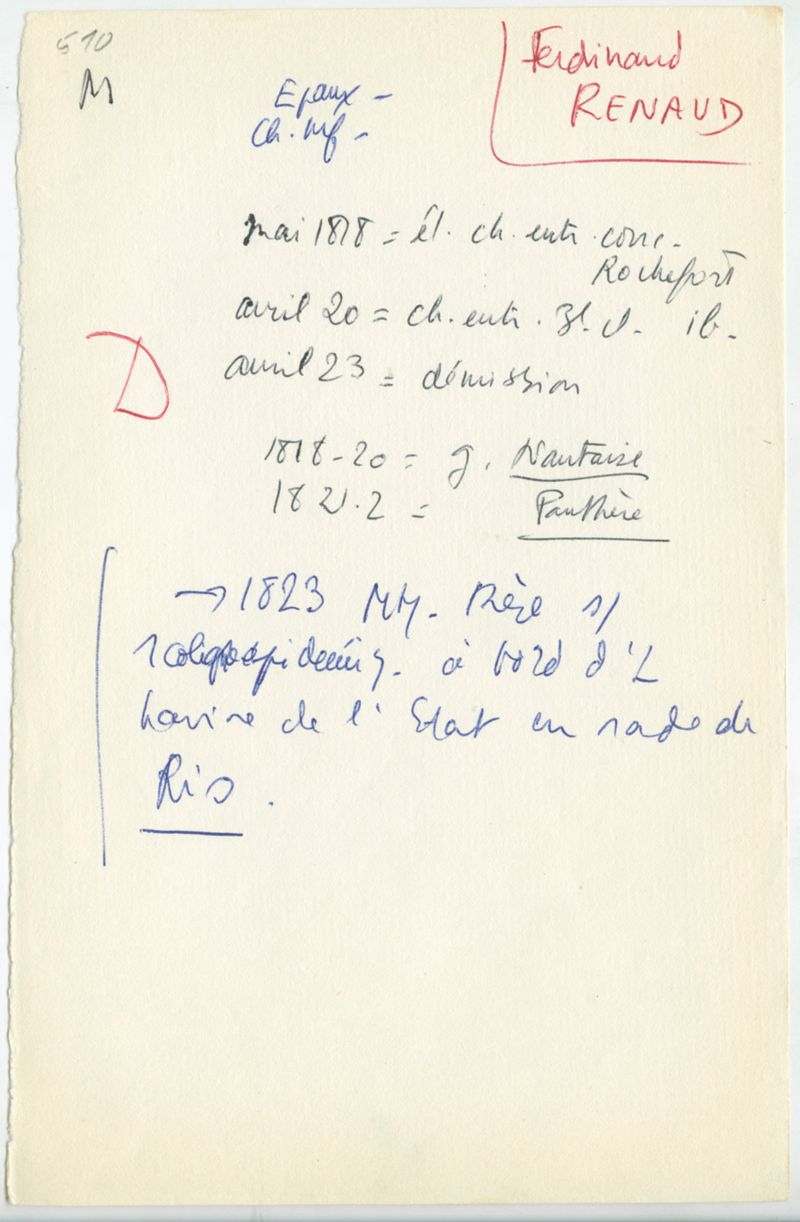 510
M
Ferdinand
RENAUD
Epaux -
Ch. Inf -
mai 1818 = él. ch. entr. conc.
Rochefort
avril 20 = ch. entr. 3e cl. ib.
avril 23 = démission
D
1818-20 = g. Nantaise
1821.2 = Panthère
→ 1823 MM. Thèse s/
à bord d'1
navire de l'Etat en rade de
Rio.